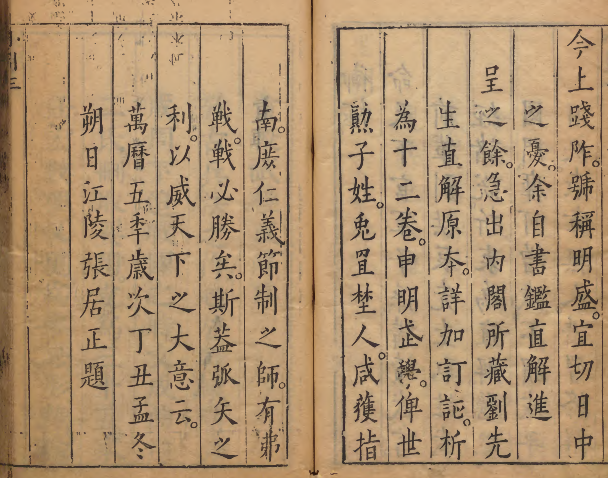 今上踐阼。號稱明盛。宜切日中
之憂。余自書鑑直解進
呈之餘。急出內閣所藏劉先
生直解原本。詳加訂訛。析
為十二卷。申明武學。俾世
勳子姓。兎罝埜人。咸獲指
南。庶仁義節制之師。有弗
戰。戰必勝矣。斯葢弧矢之
利。以威天下之大意云。
萬曆五年歲次丁丑孟冬
朔日江陵張居正題